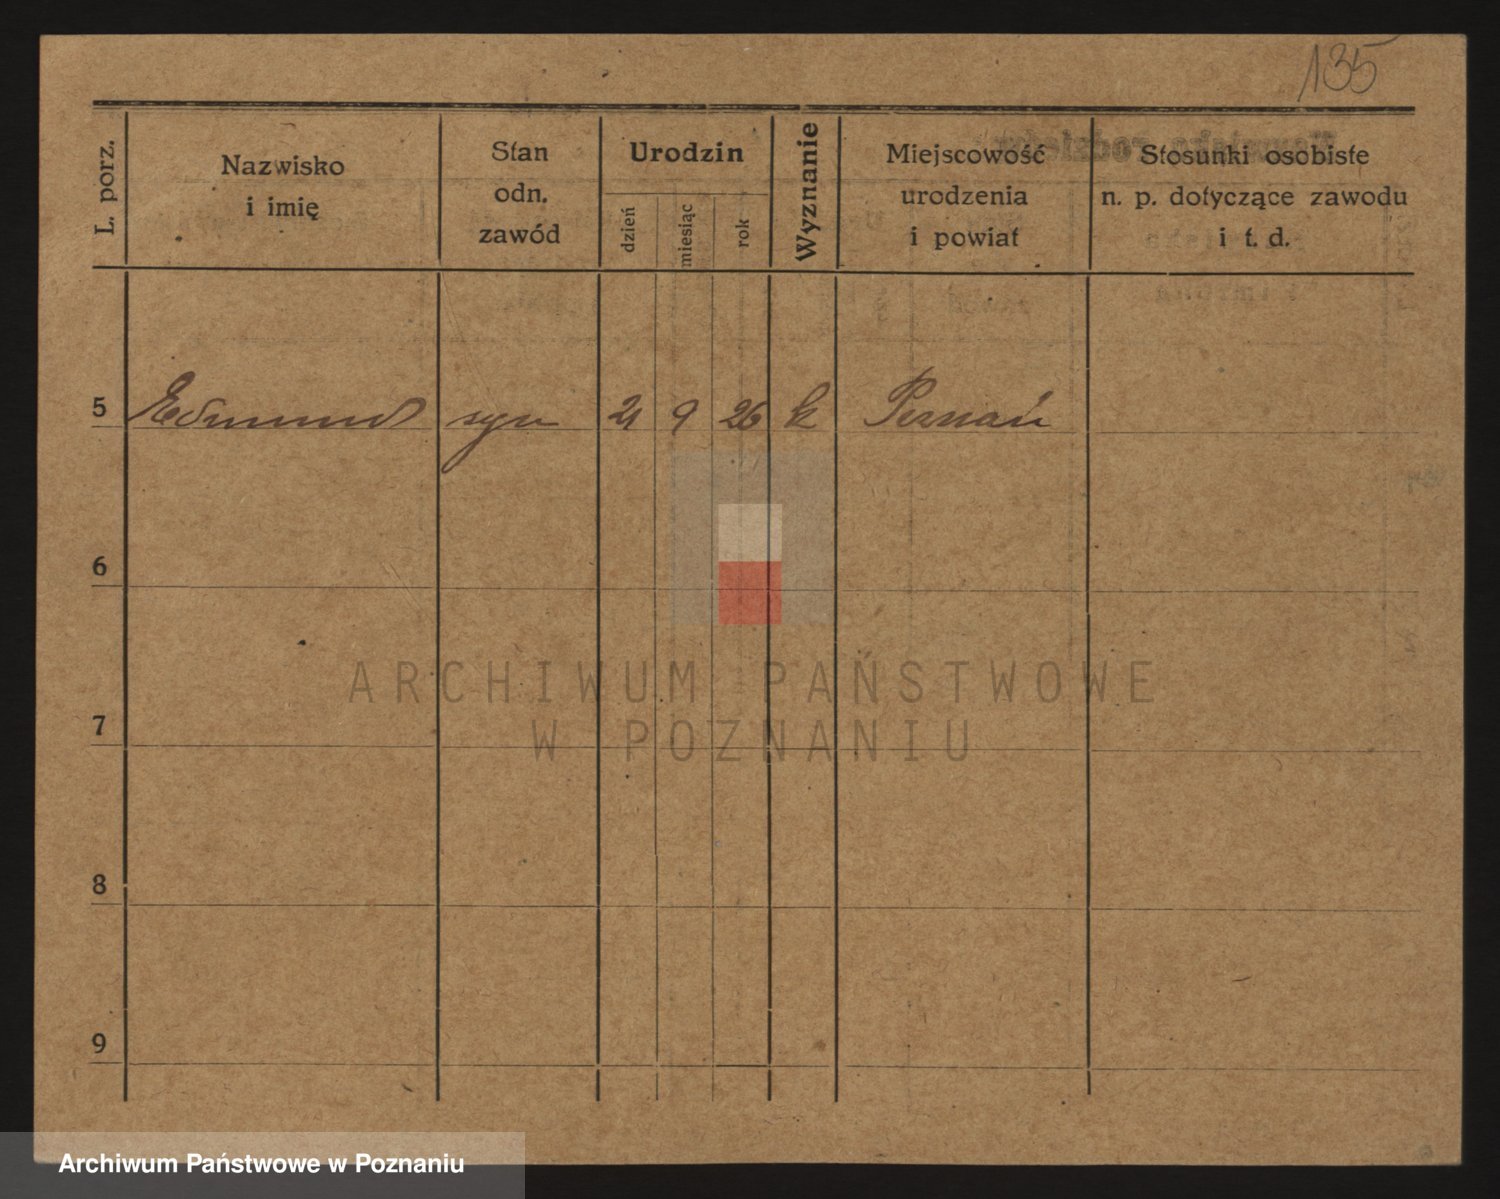 135
L. porz.
Nazwisko
i imię
Stan
odn.
zawód
Urodzin
dzień
miesiąc
rok
Wyznanie
Miejscowość
urodzenia
i powiat
Stosunki osobiste
n. p. dotyczące zawodu
i t. d.
5 Edmund syn 21 9 26 k Poznań
6
7
8
9
ARCHIWUM PAŃSTWOWE
W POZNANIU
Archiwum Państwowe w Poznaniu